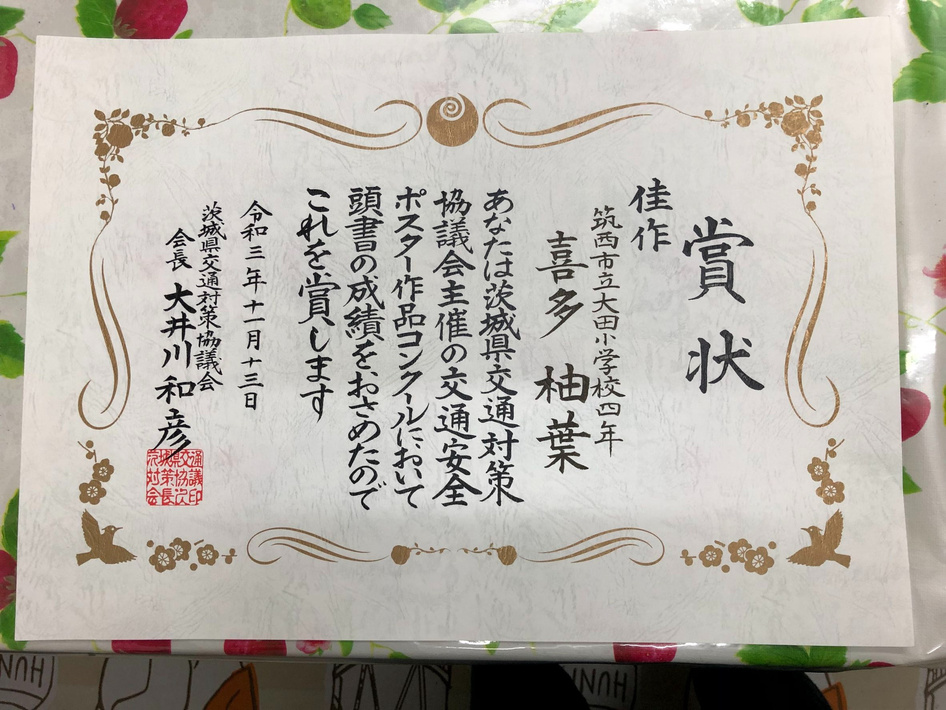 賞状
佳作
筑西市立大田小学校四年
喜多 柚葉
あなたは茨城県交通対策
協議会主催の交通安全
ポスター作品コンクールにおいて
頭書の成績をおさめたので
これを賞します
令和三年十一月十三日
茨城県交通対策協議会
会長 大井川和彦
HUNT
HUNT